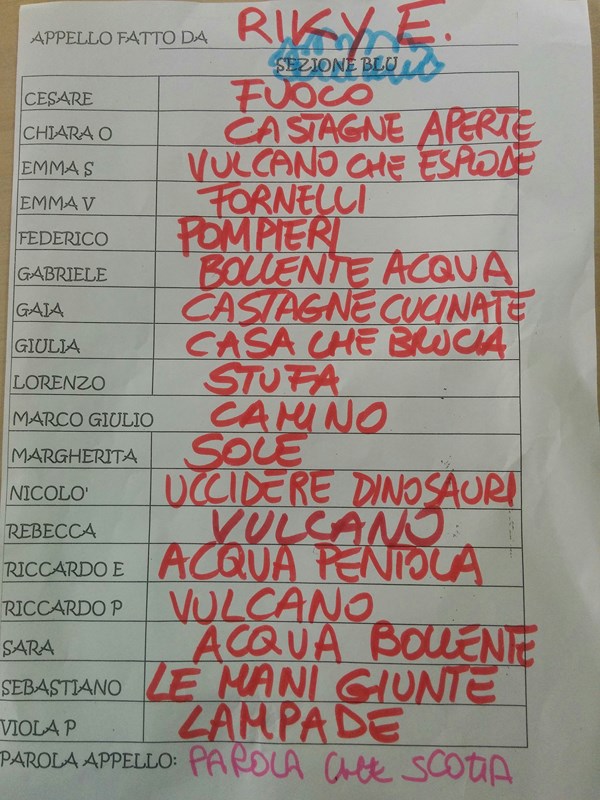 APPELLO FATTO DA RIKY E.
SEZIONE BLU
CESARE FUOCO
CHIARA O CASTAGNE APERTE
EMMA S VULCANO CHE ESPLODE
EMMA V FORNELLI
FEDERICO POMPIERI
GABRIELE BOLLENTE ACQUA
GAIA CASTAGNE CUCINATE
GIULIA CASA CHE BRUCIA
LORENZO STUFA
MARCO GIULIO CAMINO
MARGHERITA SOLE
NICOLO' UCCIDERE DINOSAURI
REBECCA VULCANO
RICCARDO E ACQUA PENTOLA
RICCARDO P VULCANO
SARA ACQUA BOLLENTE
SEBASTIANO LE MANI GIUNTE
VIOLA P LAMPADE
PAROLA APPELLO: PAROLA CHE SCOTTA